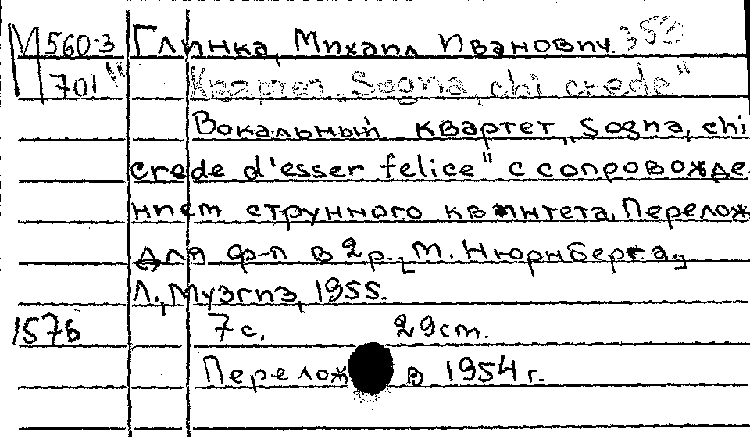 М 560-3 Глинка, Михаил Иванович. 350
701 Квартет „Sogna, chi crede"
Вокальный квартет „Sogna, chi
crede d'esser felice" с сопровожде
нием струнного квинтета. Перелож
для ф-п в 2 р. [М. Нюрнберга.]
Л., Музгиз, 1955.
157б 7 с. 29 cm.
Перелож в 1954 г.